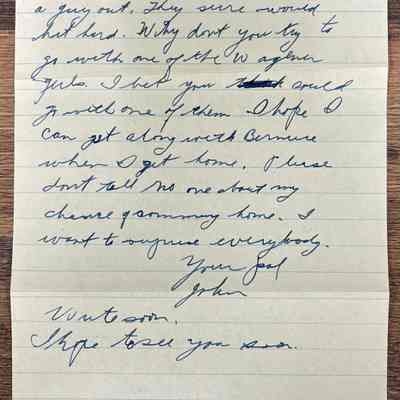 a guy out. They sure would
hit hard. Why dont you try to
go with one of the Wagener
girls. I bet you could
go with one of them I hope I
can get along with Bernice
when I get home. Please
dont tell no one about my
chance of comming home. I
want to surprise everybody.
Your pal
John
Write soon.
I hope to see you soon.